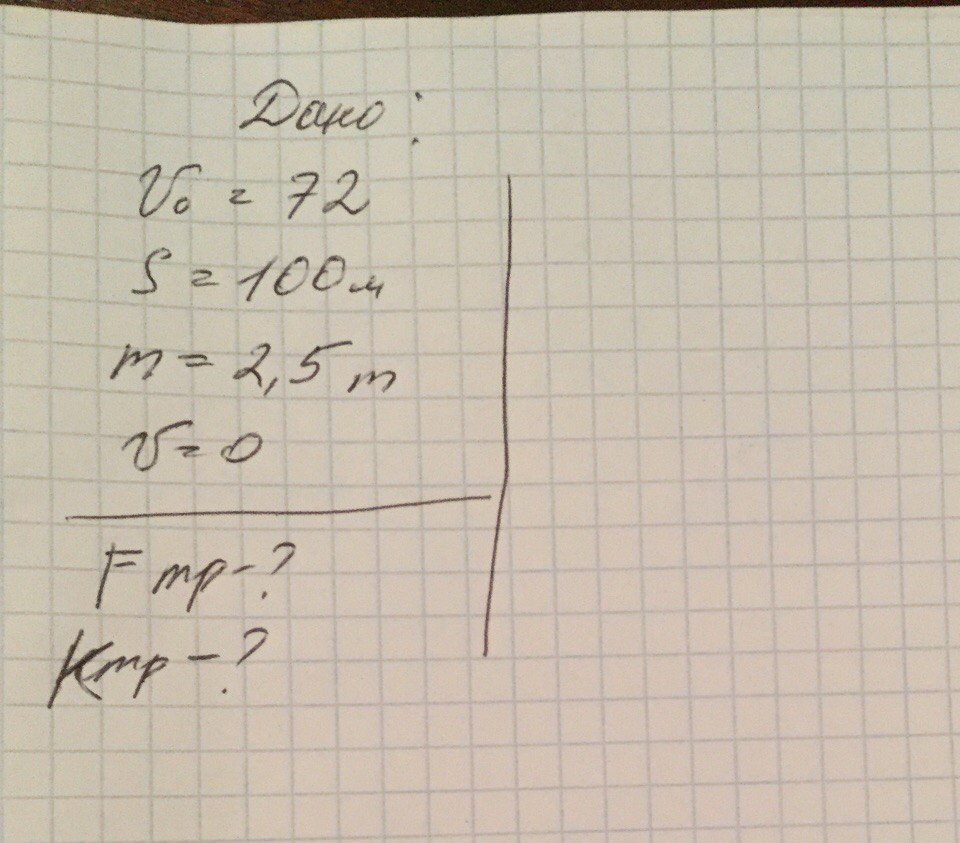 Дано:
V₀ = 72
S = 100м
m = 2,5 т
V = 0
F тр - ?
Kтр - ?